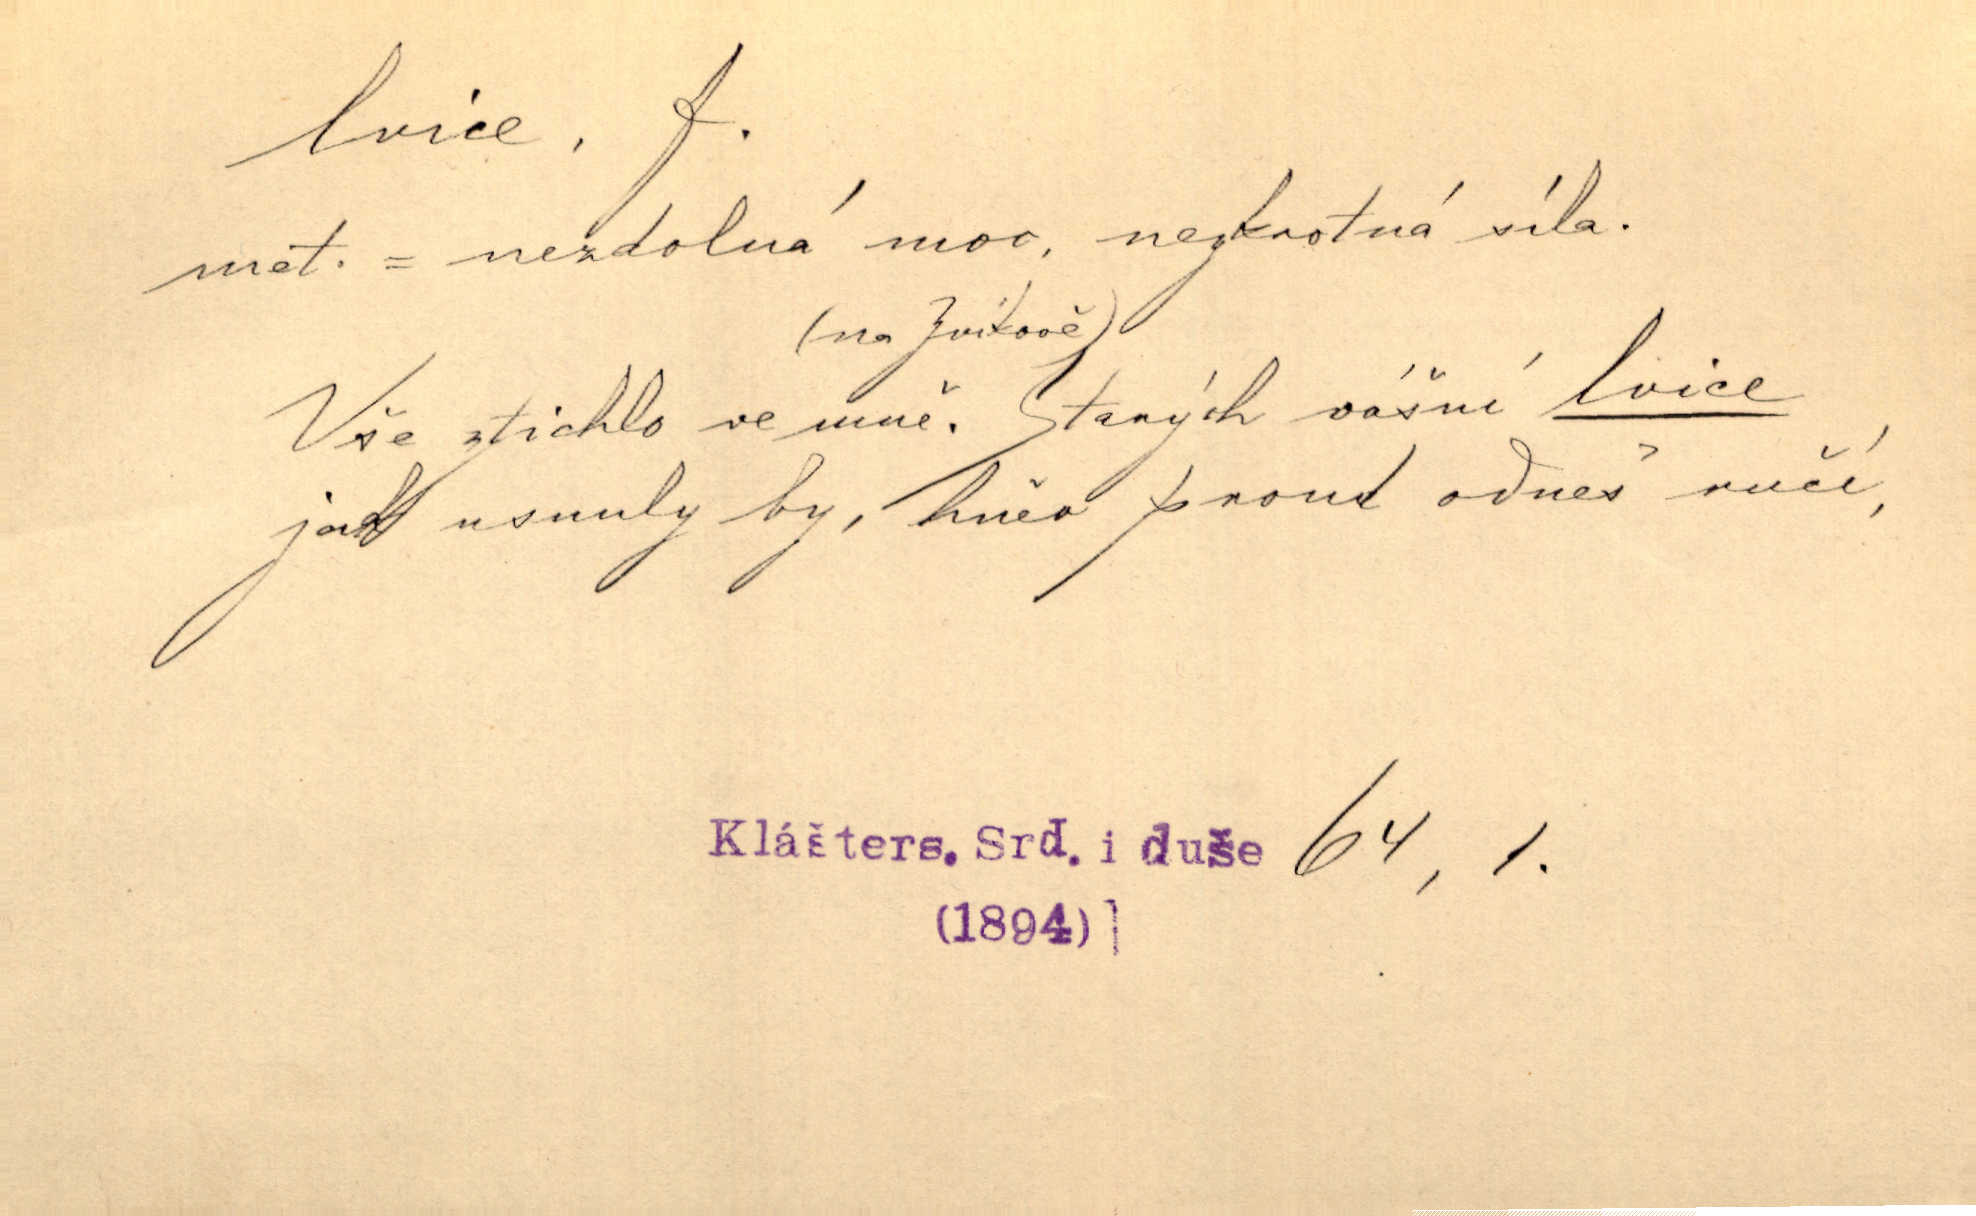 lvice, f.
met. = nezdolná moc, nezkrotná síla.
(na Zvíkově)
Vše ztichlo ve mně. Starých vášní lvice
jak usnuly by, hněv proud odnes' ručí,
Klášters. Srd. i duše 64, 1.
(1894)]